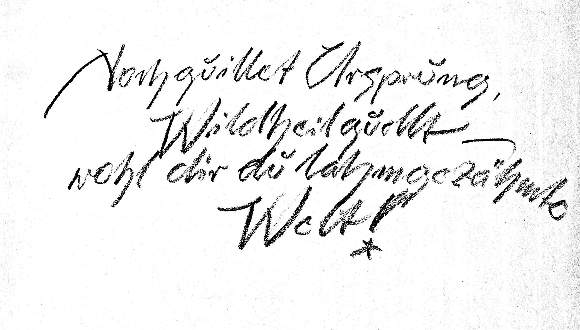 Noch quillet Ursprung,
Wildheil quillt –
wohl dir du lahmgezähmte
Welt!
*